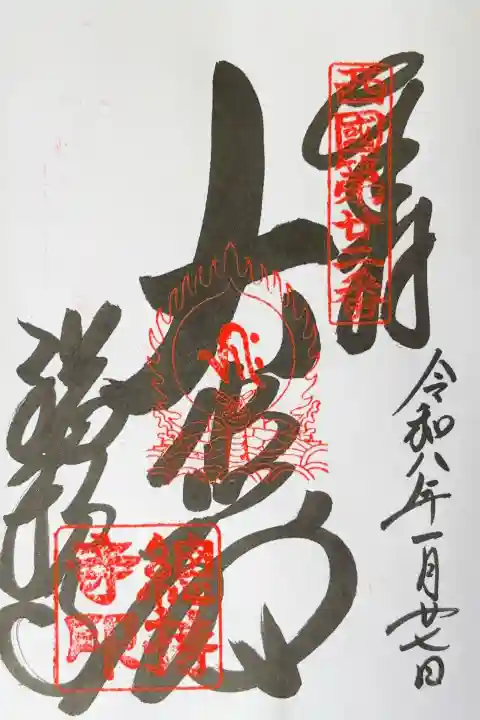 西國第廿二番
奉拝
令和八年一月廿七日
大悲殿
総持寺
總持寺印